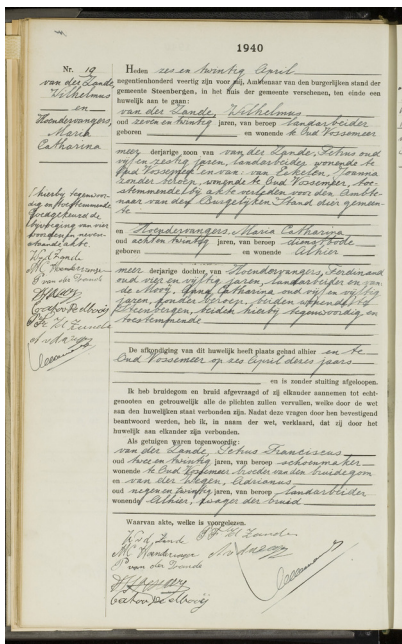 1940
Nr. 19
van der Zande,
Wilhelmus
en
Hoendervangers,
Maria
Catharina
Heden zes en twintig April
negentienhonderd veertig zijn voor mij, Ambtenaar van den burgerlijken stand der
gemeente Steenbergen, in het huis der gemeente verschenen, ten einde een
huwelijk aan te gaan:
van der Zande, Wilhelmus
oud zeven en twintig jaren, van beroep landarbeider
geboren en wonende te Oud Vossemeer
meerderjarige zoon van van der Zande, Petrus oud
vijf en zestig jaren, landarbeider wonende te
Oud Vossemeer en van van Eekelen, Joanna
zonder beroep, wonende te Oud Vossemeer, toe-
stemmende bij akte verleden voor den Ambte-
naar van den Burgelijken Stand dier gemeen-
te
en Hoendervangers, Maria Catharina
oud acht en twintig jaren, van beroep dienstbode
geboren en wonende Alhier
meerderjarige dochter van Hoendervangers, Ferdinand
oud vier en vijftig jaren, landarbeider en van
de Mooij, Anna Catharina oud vijf en vijftig
jaren, zonder beroep, beiden wonende te
Steenbergen, beiden hierbij tegenwoordig en
toestemmende
De afkondiging van dit huwelijk heeft plaats gehad alhier en te
Oud Vossemeer op zes April dezes jaars
en is zonder stuiting afgeloopen.
Ik heb bruidegom en bruid afgevraagd of zij elkander aannemen tot echt-
genooten en getrouwelijk alle de plichten zullen vervullen, welke door de wet
aan den huwelijken staat verbonden zijn. Nadat deze vragen door hen bevestigend
beantwoord werden, heb ik, in naam der wet, verklaard, dat zij door het
huwelijk aan elkander zijn verbonden.
Als getuigen waren tegenwoordig:
van der Zande, Petrus Franciscus
oud twee en twintig jaren, van beroep schoenmaker
wonende te Oud Vossemeer broeder van den bruidegom
en van der Wegen, Adrianus
oud negen en twintig jaren, van beroep landarbeider
wonende Alhier, zwager der bruid
Waarvan akte, welke is voorgelezen.